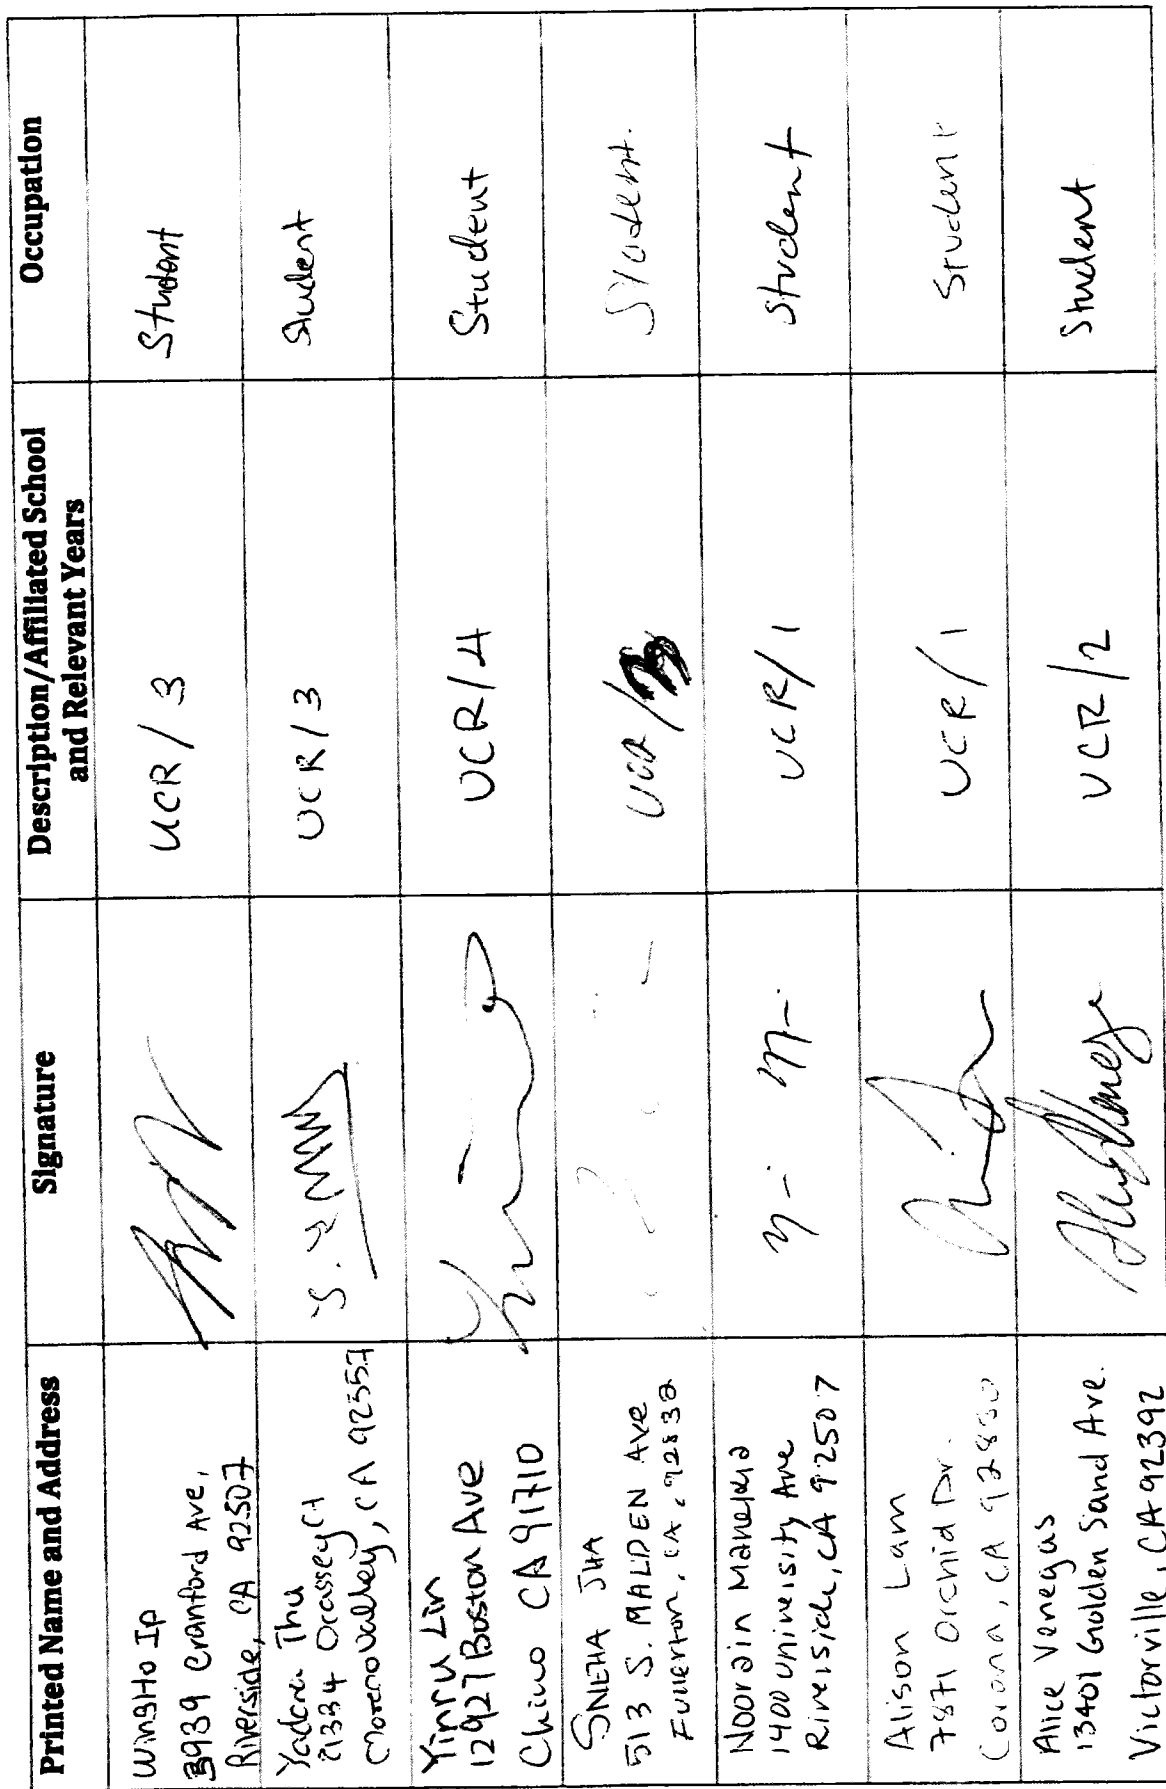 Printed Name and Address
Signature
Description/Affiliated School
and Relevant Years
Occupation
WingHo Ip
3939 Cranford Ave,
Riverside, CA 92507
UCR / 3
Student
Thu
Ct
Moreno Valley, CA 92557
UCR / 3
Student
Yinru Lin
12927 Boston Ave
Chino CA 91710
UCR / 4
Student
SNEHA JHA
513 S. MALDEN Ave
Fullerton, CA, 92832
Student.
Noorain
1400 University Ave
Riverside, CA 92507
UCR / 1
Student
Alison Lam
7871 Orchid Dr.
Corona, CA
UCR / 1
Student
Alice Venegas
13401 Golden Sand Ave.
Victorville, CA 92392
UCR / 2
Student